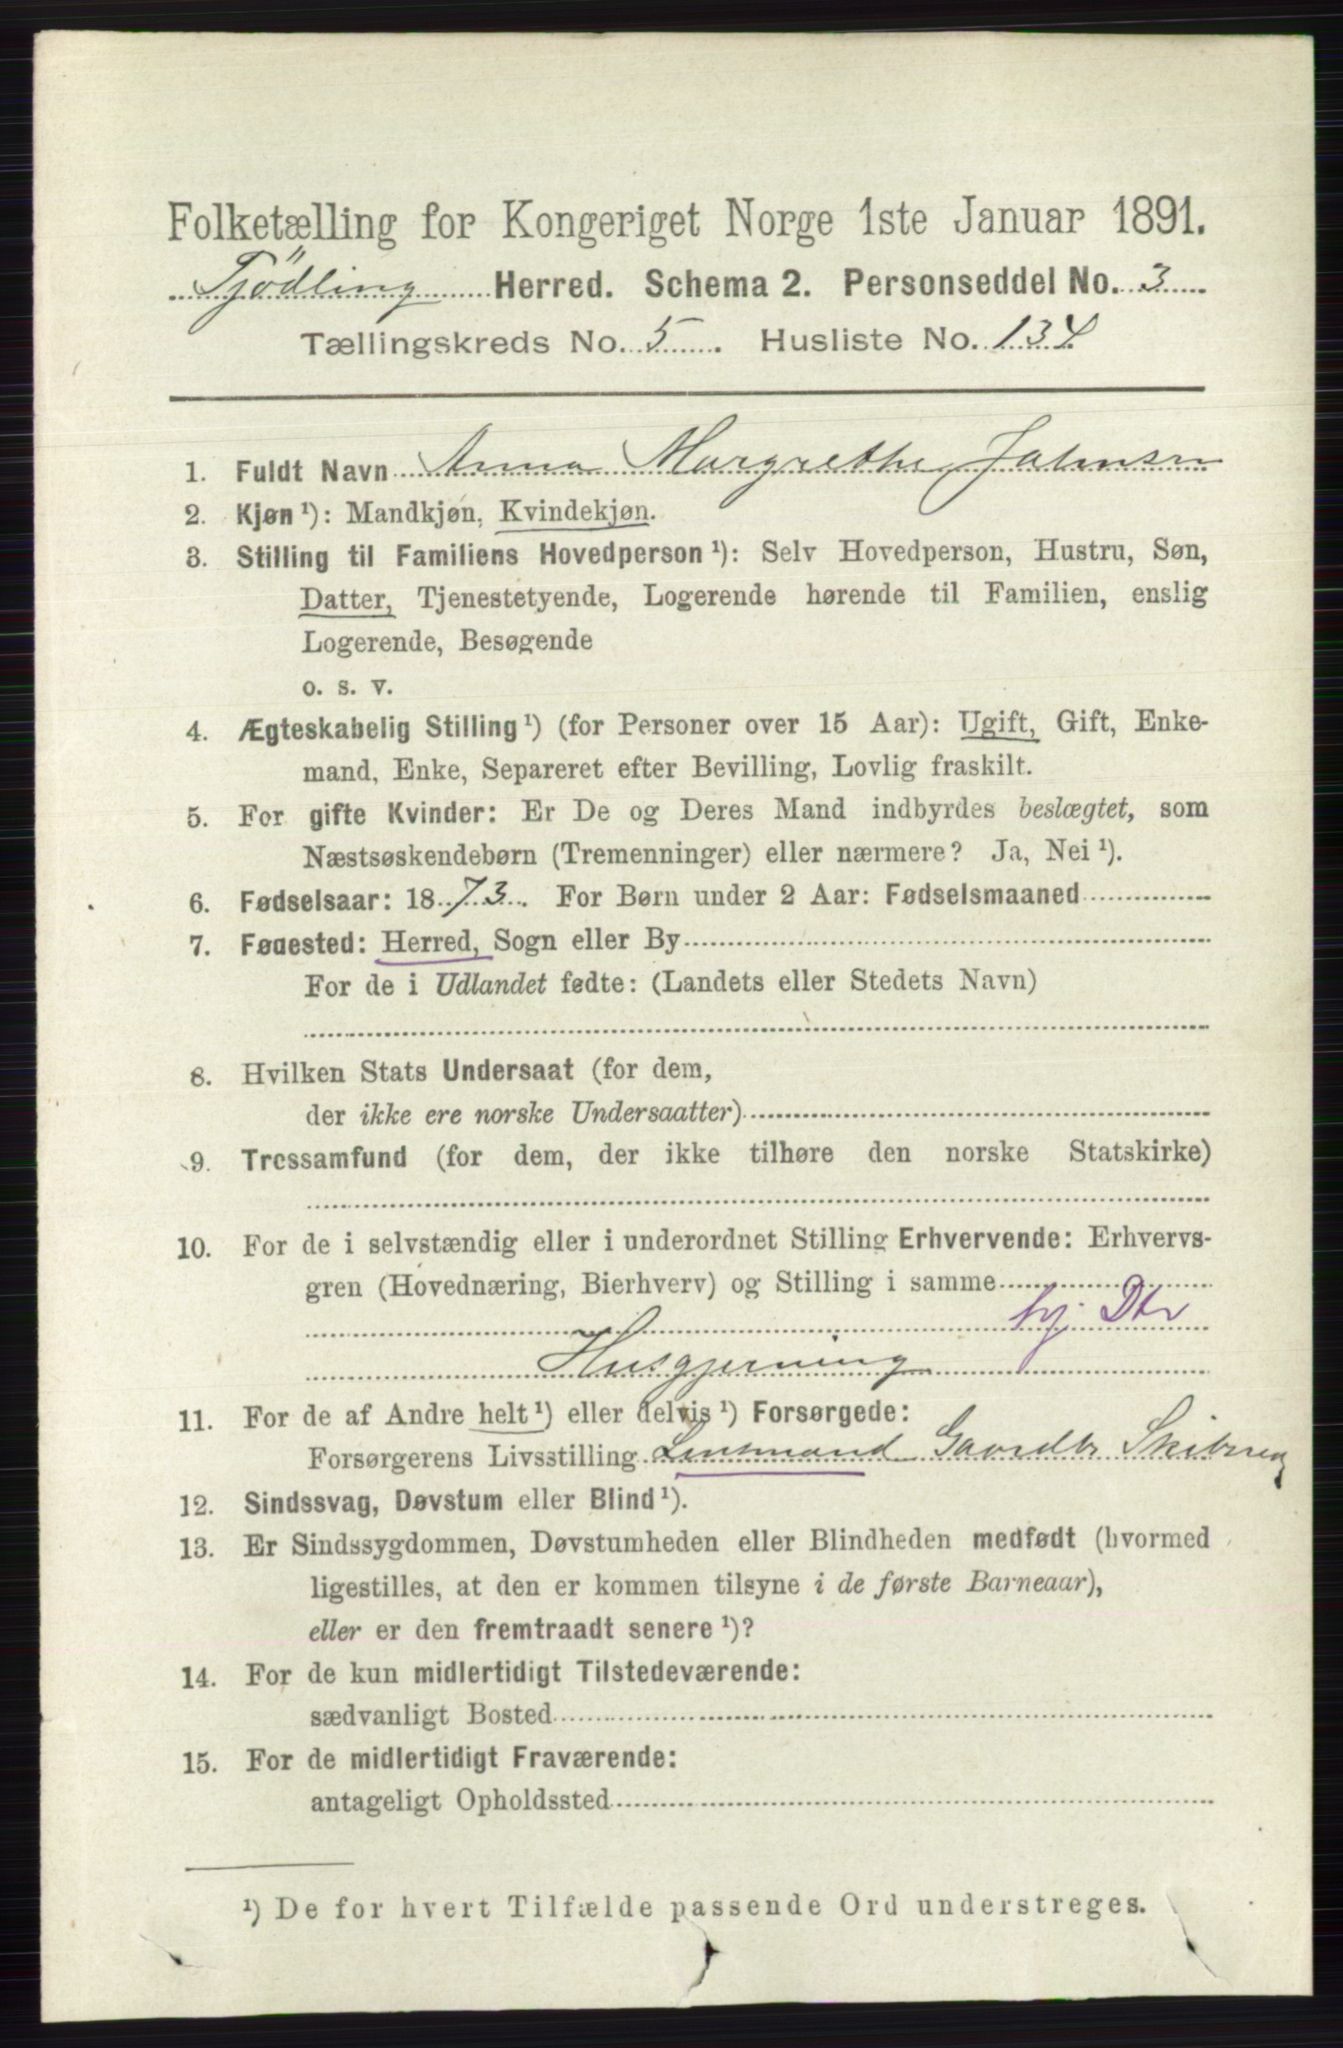 Folketælling for Kongeriget Norge 1ste Januar 1891.
Tjödling Herred. Schema 2. Personseddel No. 3
Tællingskreds No. 5. Husliste No. 134
1. Fuldt Navn Anna Margrethe Johnsen
2. Kjøn ¹): Mandkjøn, Kvindekjøn.
3. Stilling til Familiens Hovedperson ¹): Selv Hovedperson, Hustru, Søn,
Datter, Tjenestetyende, Logerende hørende til Familien, enslig
Logerende, Besøgende
o. s. v.
4. Ægteskabelig Stilling ¹) (for Personer over 15 Aar): Ugift, Gift, Enke-
mand, Enke, Separeret efter Bevilling, Lovlig fraskilt.
5. For gifte Kvinder: Er De og Deres Mand indbyrdes beslægtet, som
Næstsøskendebørn (Tremenninger) eller nærmere? Ja, Nei ¹).
6. Fødselsaar: 1873. For Børn under 2 Aar: Fødselsmaaned
7. Fødested: Herred, Sogn eller By
For de i Udlandet fødte: (Landets eller Stedets Navn)
8. Hvilken Stats Undersaat (for dem,
der ikke ere norske Undersaatter)
9. Trossamfund (for dem, der ikke tilhøre den norske Statskirke)
10. For de i selvstændig eller i underordnet Stilling Erhvervende: Erhvervs-
gren (Hovednæring, Bierhverv) og Stilling i samme
hj. Dtr
Husgjerning
11. For de af Andre helt ¹) eller delvis ¹) Forsørgede:
Forsørgerens Livsstilling Lensmand Gaardbr
12. Sindssvag, Døvstum eller Blind ¹).
13. Er Sindssygdommen, Døvstumheden eller Blindheden medfødt (hvormed
ligestilles, at den er kommen tilsyne i de første Barneaar),
eller er den fremtraadt senere ¹)?
14. For de kun midlertidigt Tilstedeværende:
sædvanligt Bosted
15. For de midlertidigt Fraværende:
antageligt Opholdssted
¹) De for hvert Tilfælde passende Ord understreges.